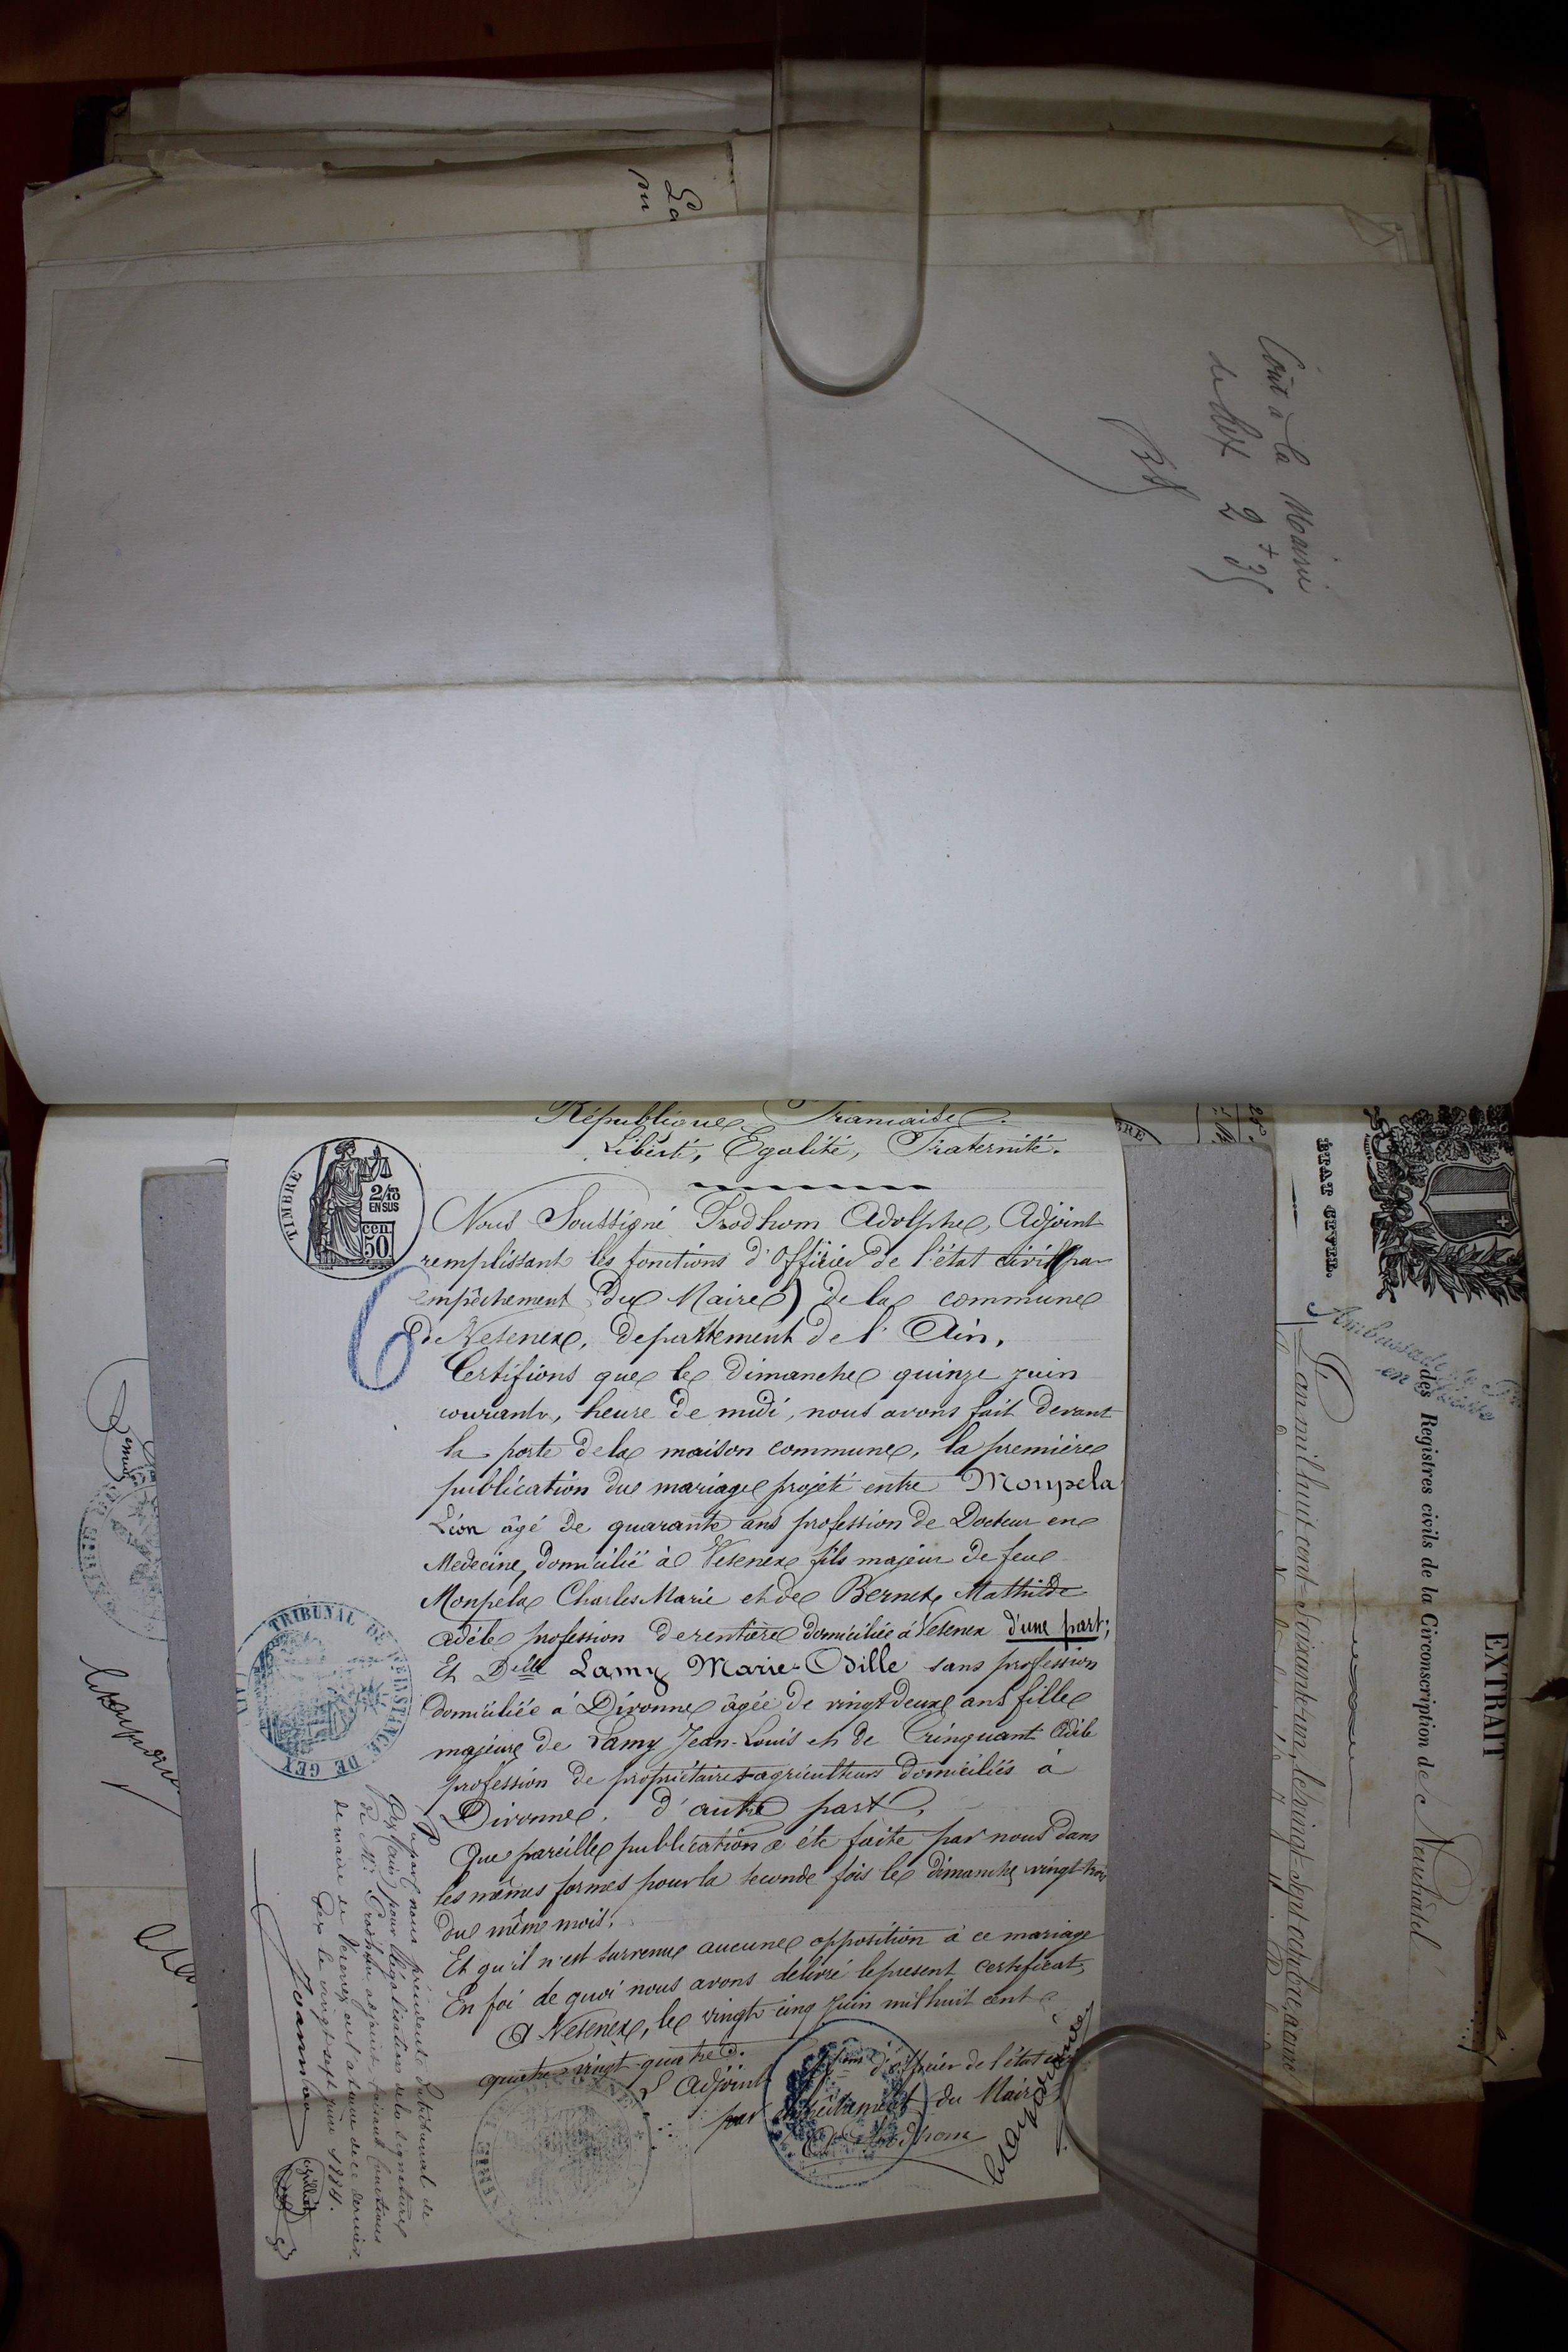 La
Coût à la Mairie
de Gex 2 + 35
République Française.
Liberté, Egalité, Fraternité.
TIMBRE
2/10
EN SUS
cen
50
6
Nous Soussigné Prodhom Adolphe, Adjoint
remplissant les fonctions d'Officier de l'état civil (par
empêchement du Maire) de la commune
de Vesenex, département de l'Ain,
Certifions que le Dimanche quinze juin
courant, heure de midi, nous avons fait devant
la porte de la maison commune, la première
publication du mariage projeté entre Monpela
Léon âgé de quarante ans profession de Docteur en
Medecine, domicilié à Vesenex fils majeur de feu
Monpela Charles Marie et de Bernex Mathilde
Adèle profession de rentière domiciliée à Vesenex d'une part;
Et Delle Lamy Marie-Odille sans profession
domiciliée à Divonne âgée de vingt deux ans fille
majeure de Lamy Jean-Louis et de Crinquant Adèle
profession de propriétaires agriculteurs domiciliés à
Divonne, d'autre part,
Que pareille publication a été faite par nous dans
les mêmes formes pour la seconde fois le dimanche vingt-trois
du même mois.
Et qu'il n'est survenue aucune opposition à ce mariage
En foi de quoi nous avons délivré le présent certificat,
A Vesenex, le vingt-cinq Juin mil huit cent
quatre-vingt-quatre.
L'Adjoint d'officier de l'état
par empêchement du Maire
Prodhom
TRIBUNAL DE 1ère INSTANCE DE GEX
Vu par nous président du tribunal de
Gex (Ain) pour légalisation de la signature
de Mr Prodhom adjoint faisant fonctions
de maire de Vesenex
Gex le vingt-sept juin 1884.
EXTRAIT
des Registres civils de la Circonscription de Neuchâtel
ÉTAT CIVIL.
Ambassade de
en Suisse
L'an mil huit cent soixante-un, le vingt-sept octobre,